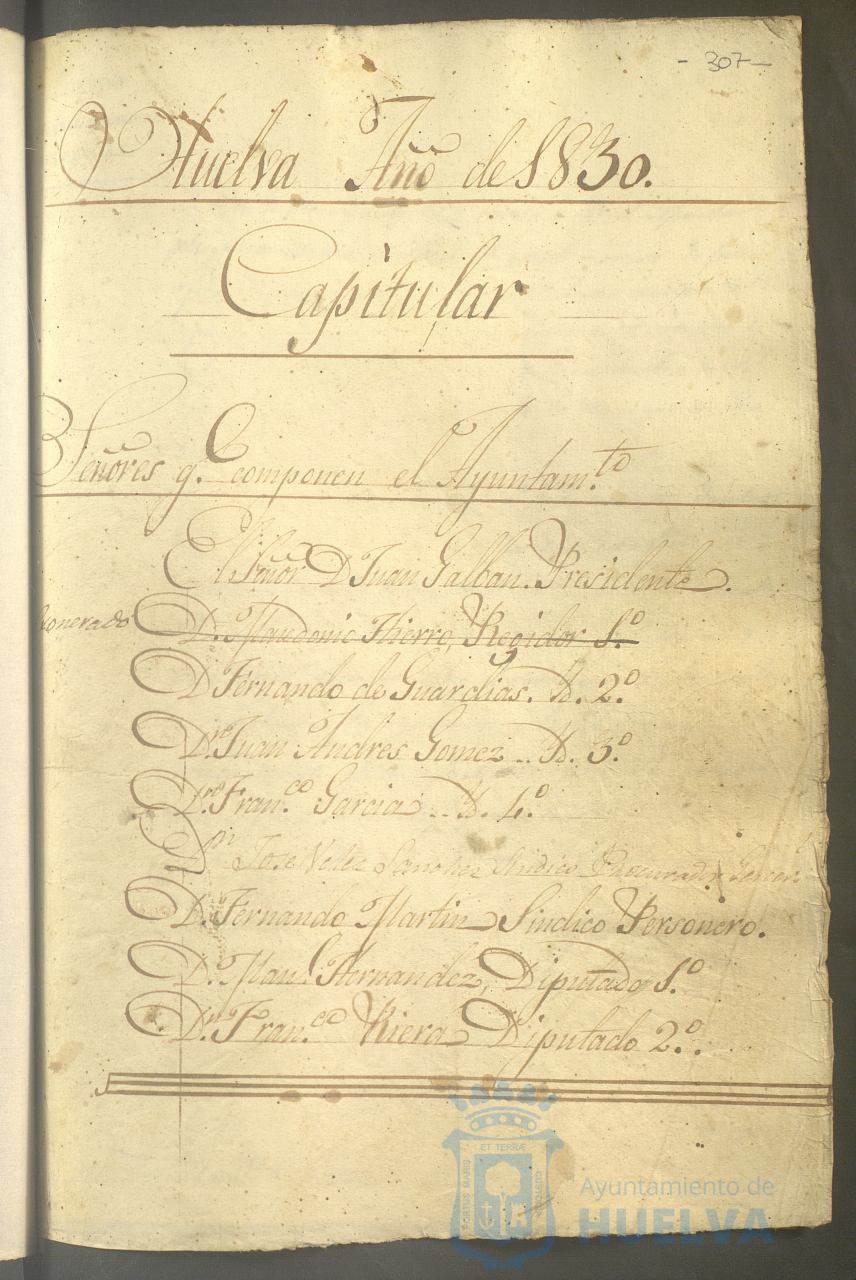 - 307 -
Huelva Año de 1830.
Capitular
Señores q.e componen el Ayuntam.to
El Señor D. Juan Galban. Presidente.
D. Mardonio Hierro, Regidor 1.º
D. Fernando de Guardias. Yd. 2.º
D.n Juan Andres Gomez .. Yd. 3.º
D.n Fran.co Garcia .. Yd. 4.º
D.n Jose Velez Sanchez Sindico Procurador
D. Fernando Martin Sindico Personero.
D. Man.l Hernandez, Diputado 1.º
D.n Fran.co Riera Diputado 2.º.
PORTUS MARIS ET TERRÆ CUSTODIA
Ayuntamiento de
HUELVA